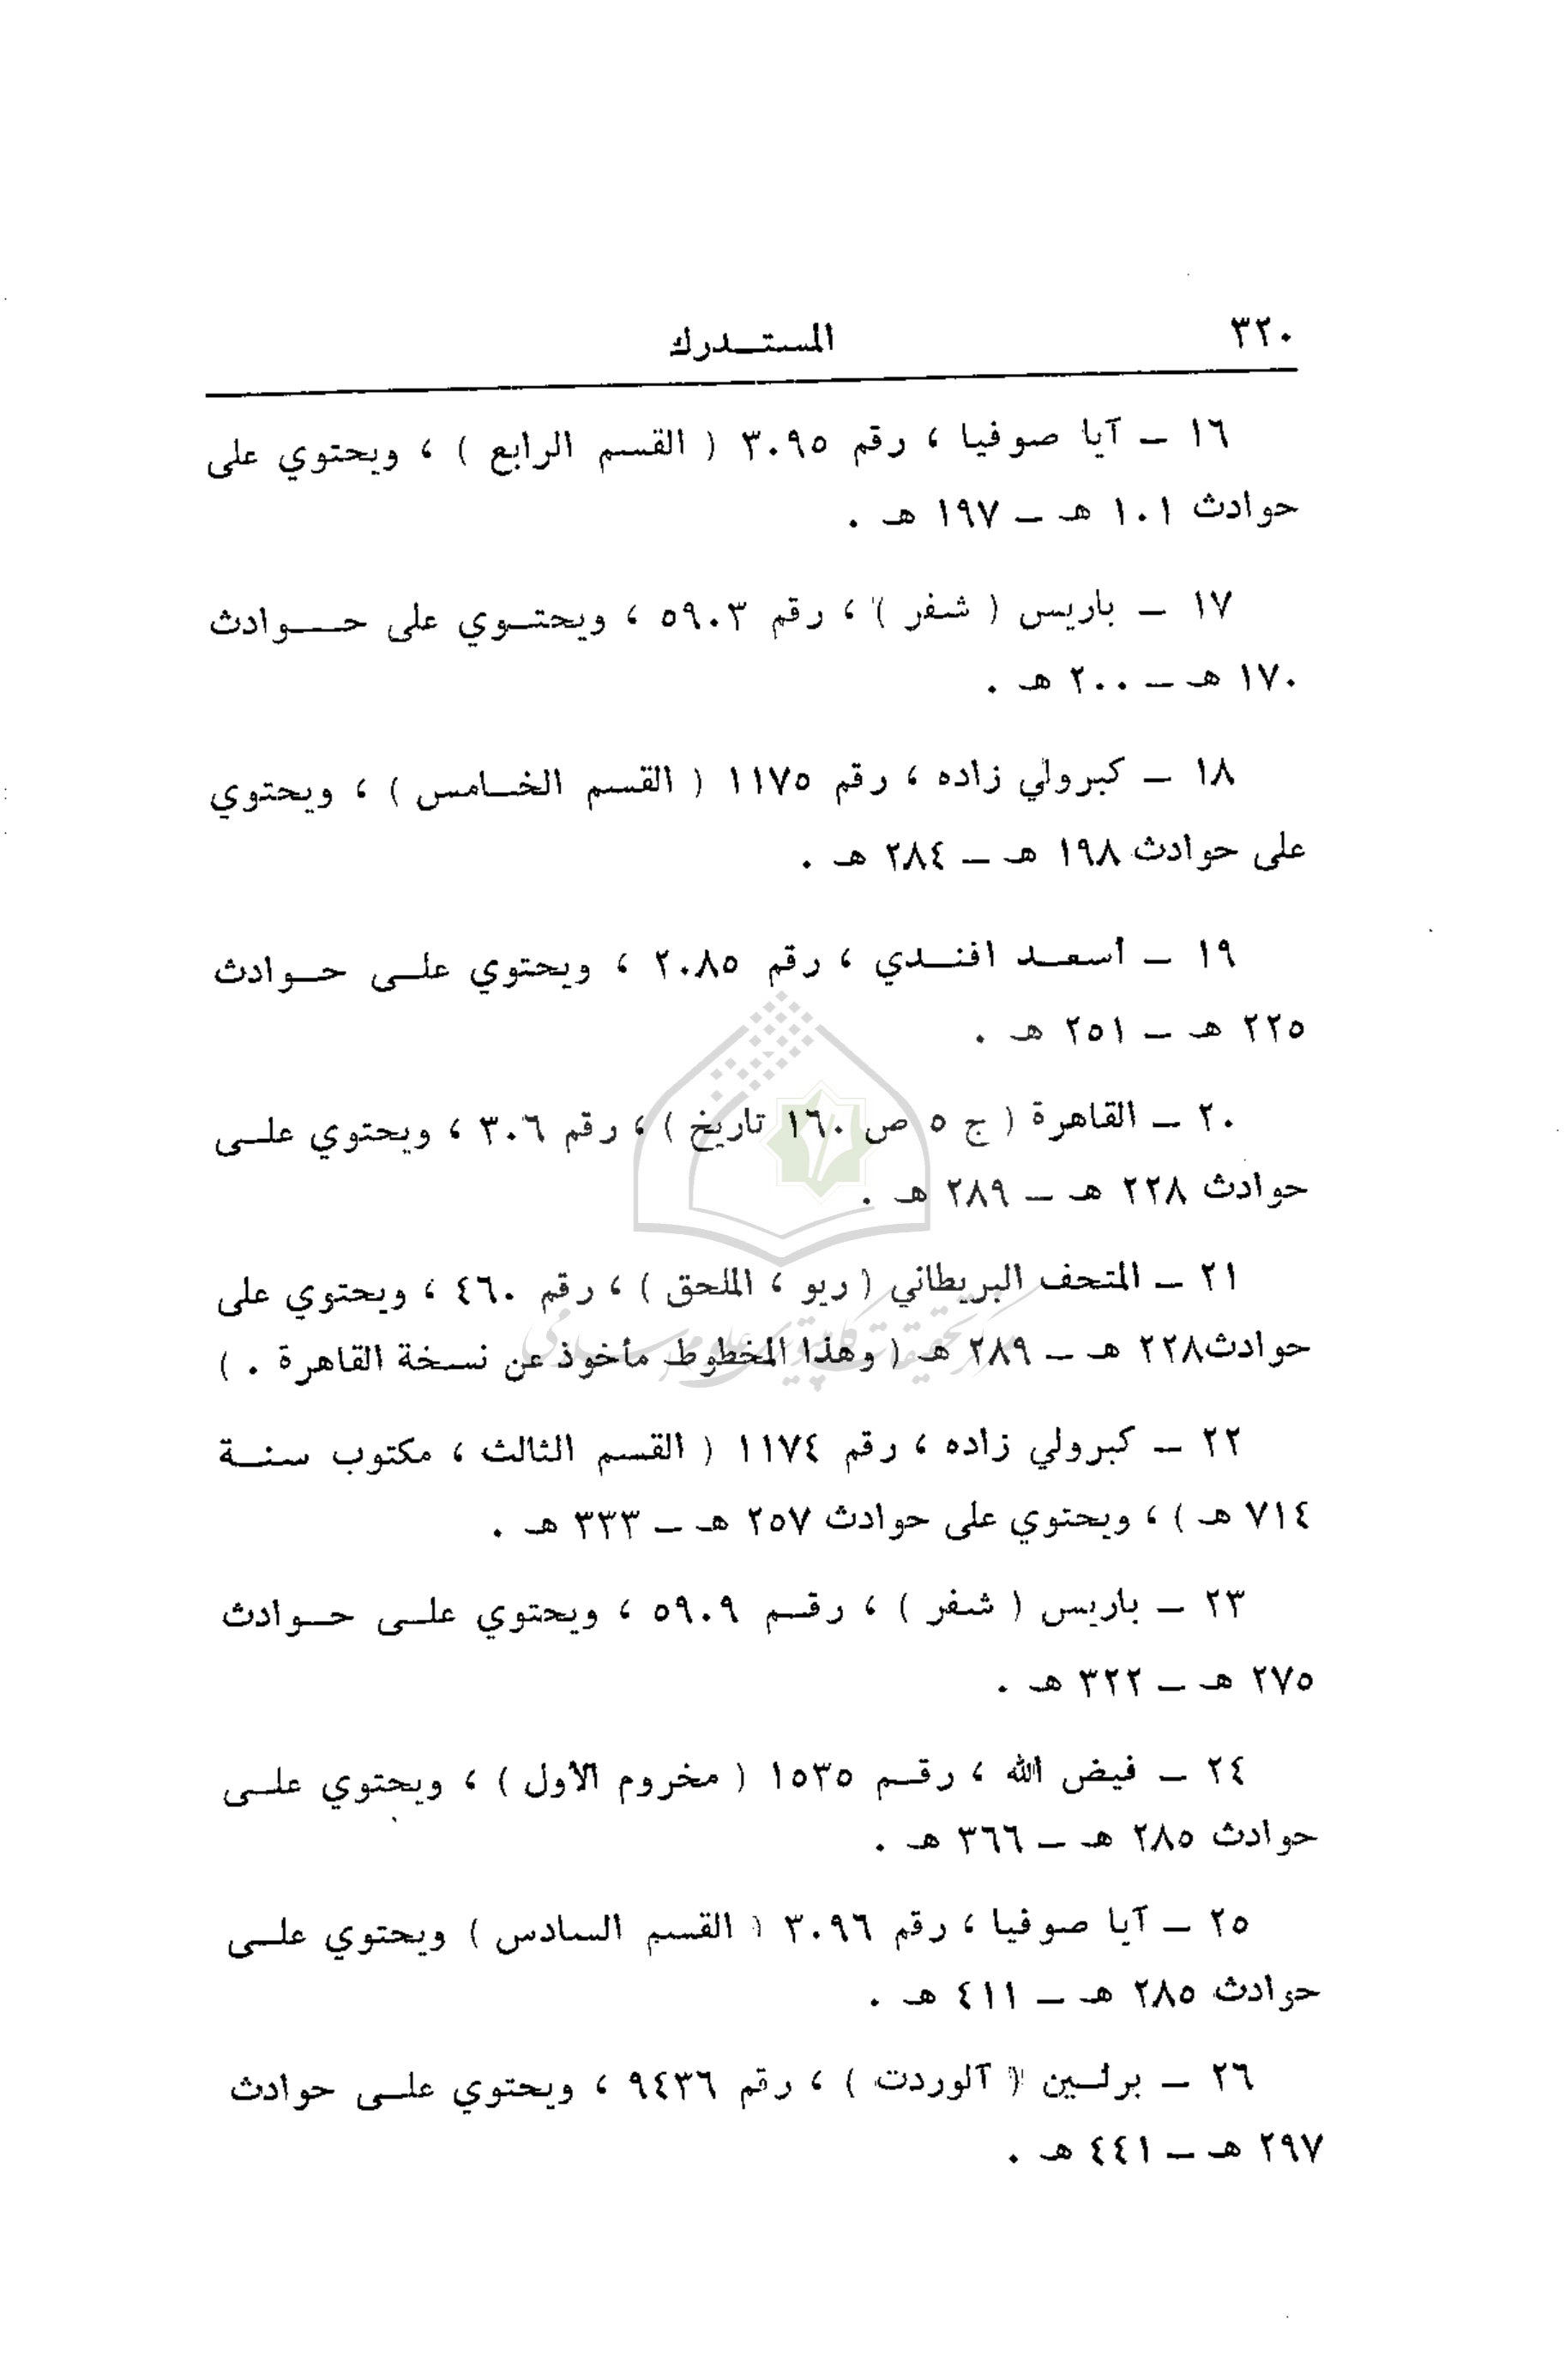 ٣٢٠ المستدرك
١٦ – آيا صوفيا ، رقم ٣٠٩٥ ( القسم الرابع ) ، ويحتوي على
حوادث ١٠١ هـ – ١٩٧ هـ .
١٧ – باريس ( شفر ) ، رقم ٥٩٠٣ ، ويحتوي على حوادث
١٧٠ هـ – ٢٠٠ هـ .
١٨ – كبرولي زاده ، رقم ١١٧٥ ( القسم الخامس ) ، ويحتوي
على حوادث ١٩٨ هـ – ٢٨٤ هـ .
١٩ – أسعد افندي ، رقم ٢٠٨٥ ، ويحتوي على حوادث
٢٢٥ هـ – ٢٥١ هـ .
٢٠ – القاهرة ( ج ٥ ص ١٦٠ تاريخ ) ، رقم ٣٠٦ ، ويحتوي على
حوادث ٢٢٨ هـ – ٢٨٩ هـ .
٢١ – المتحف البريطاني ( ريو ، الملحق ) ، رقم ٤٦٠ ، ويحتوي على
حوادث٢٢٨ هـ – ٢٨٩ هـ ( وهذا المخطوط مأخوذ عن نسخة القاهرة . )
٢٢ – كبرولي زاده ، رقم ١١٧٤ ( القسم الثالث ، مكتوب سنة
٧١٤ هـ ) ، ويحتوي على حوادث ٢٥٧ هـ – ٣٣٣ هـ .
٢٣ – باريس ( شفر ) ، رقم ٥٩٠٩ ، ويحتوي على حوادث
٢٧٥ هـ – ٣٢٢ هـ .
٢٤ – فيض الله ، رقم ١٥٣٥ ( مخروم الأول ) ، ويحتوي على
حوادث ٢٨٥ هـ – ٣٦٦ هـ .
٢٥ – آيا صوفيا ، رقم ٣٠٩٦ ( القسم السادس ) ويحتوي على
حوادث ٢٨٥ هـ – ٤١١ هـ .
٢٦ – برلين ( آلوردت ) ، رقم ٩٤٣٦ ، ويحتوي على حوادث
٢٩٧ هـ – ٤٤١ هـ .